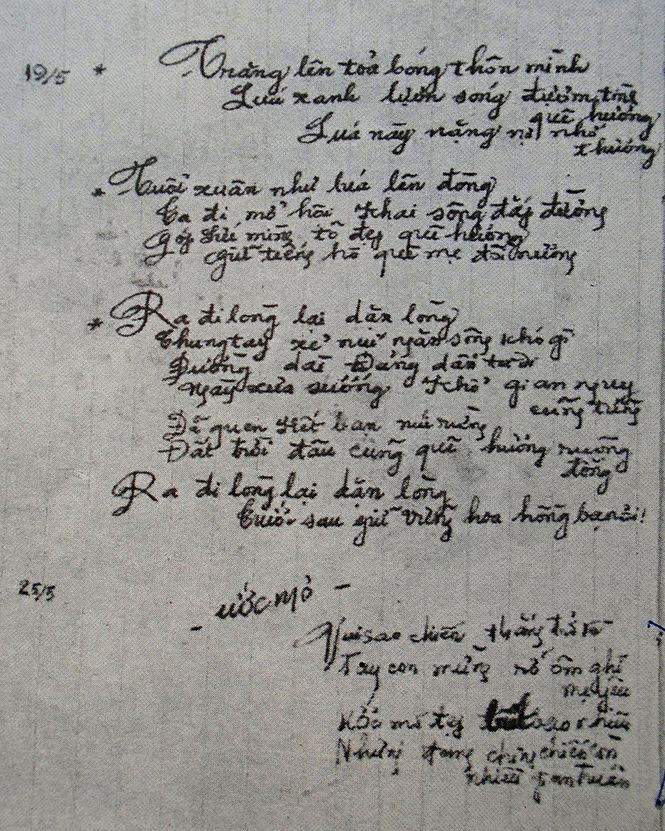 19/5 * Trăng lên toả bóng thôn mình
Lúa xanh lượn sóng đượm tình
quê hương
Lúa này nặng nợ nhớ
thương
* Tuổi xuân như lúa lên đòng
Ta đi mồ hôi khai sông đắp đường
Góp sức mình tô đẹp quê hương
Giữ tiếng hò quê mẹ
* Ra đi lòng lại dặn lòng
Chung tay xẻ núi ngăn sông khó gì
Đường dài Đảng dẫn ta đi
Ngày xưa sướng khổ gian nguy
cũng từng
Đã quen hết bạn núi rừng
Đất trời đâu cũng quê hương ruộng
đồng
Ra đi lòng lại dặn lòng
Trước sau giữ vững hoa hồng bạn ơi!
25/5
- ước mơ -
Vui sao chiến thắng trở về
Tay con mừng rỡ ôm ghì
mẹ yêu
Ước mơ đẹp bao nhiêu
Nhưng đang chống chiến còn
nhiều gian truân